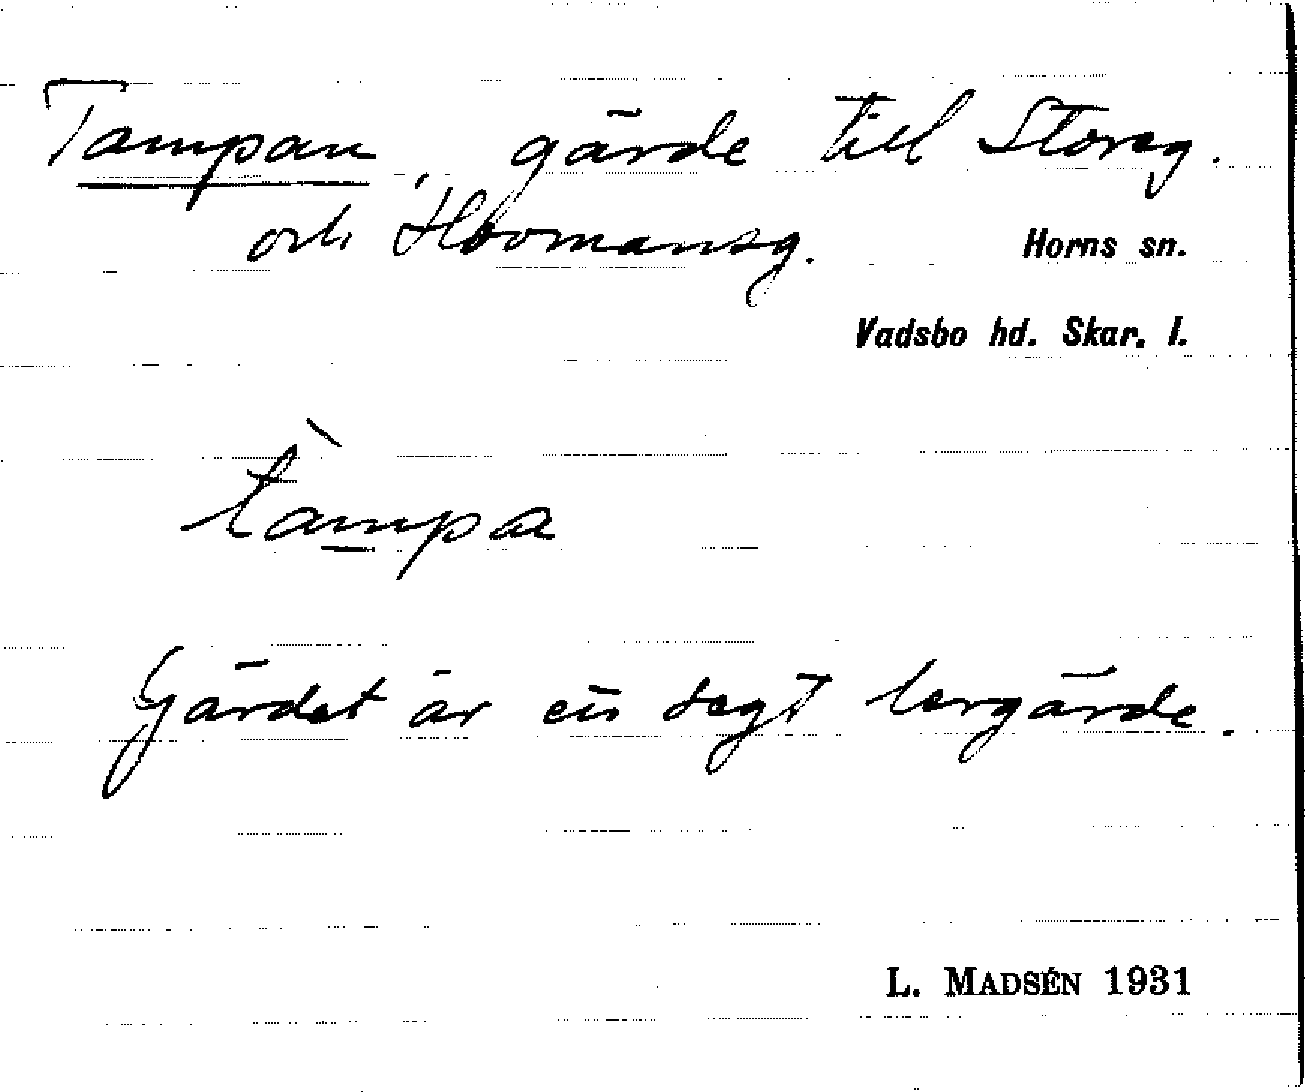 Tampan, gärde till Storeg.
och Hovmansg. Horns sn.
Vadsbo hd. Skar. l.
tàmpa
Gärdet är ett segt lergärde.
L. MADSÉN 1931